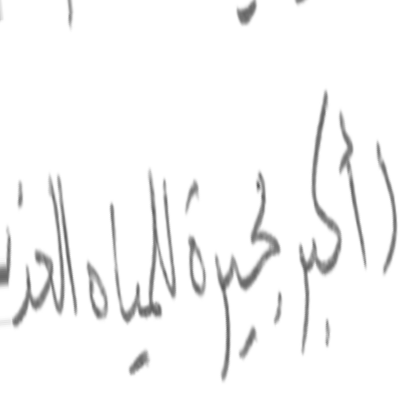 ( أكبر بحيرة للمياه العذب